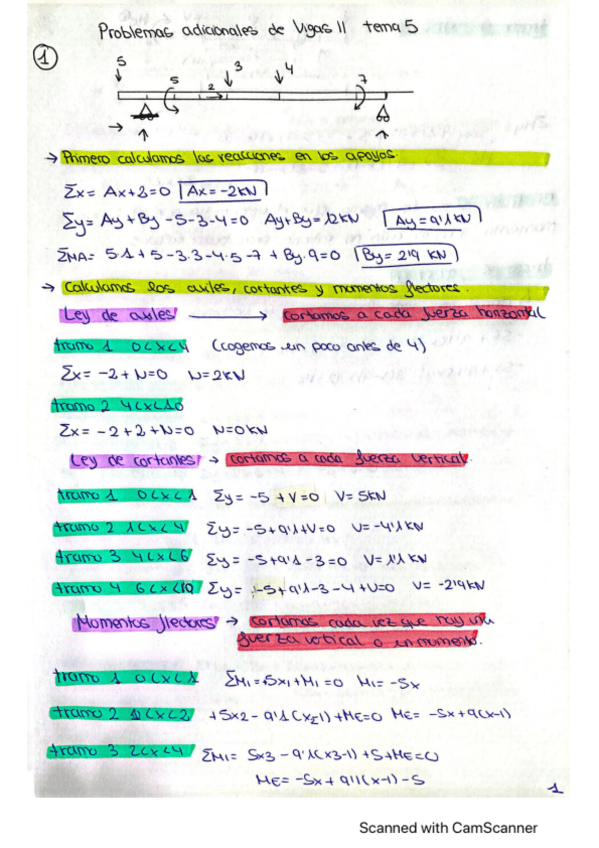 Problemas adicionales de Vigas II tema 5
1
5 5 2 3 4 7
→ Primero calculamos las reacciones en los apoyos.
Σx = Ax+2=0 Ax=-2KN
Σy = Ay+By-5-3-4=0 Ay+By=12KN Ay=9'1KN
ΣMA= 5·1+5-3·3-4·5-7+By·9=0 By=2'9 KN
→ Calculamos los axiles, cortantes y momentos flectores.
Ley de axiles → cortamos a cada fuerza horizontal
tramo 1 0<x<4 (cogemos un poco antes de 4)
Σx = -2+N=0 N=2KN
tramo 2 4<x<10
Σx = -2+2+N=0 N=0KN
Ley de cortantes → cortamos a cada fuerza vertical.
tramo 1 0<x<1 Σy= -5+V=0 V=5KN
tramo 2 1<x<4 Σy= -5+9'1+V=0 V=-4'1KN
tramo 3 4<x<6 Σy= -5+9'1-3=0 V=1'1KN
tramo 4 6<x<10 Σy= -5+9'1-3-4+V=0 V= -2'9KN
Momentos flectores → cortamos cada vez que hay una
fuerza vertical o un momento.
tramo 1 0<x<1 ΣM1=+5x1+M1=0 M1=-5x
tramo 2 1<x<2 +5x2-9'1(x2-1)+ME=0 ME= -5x+9(x-1)
tramo 3 2<x<4 ΣM1= 5x3-9'1(x3-1)+5+ME=0
ME= -5x+9'1(x-1)-5
1
Scanned with CamScanner